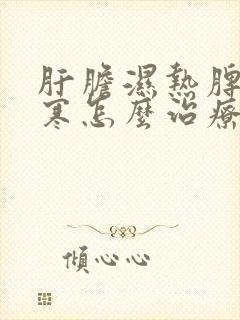 肝膽濕熱脾
寒怎麼治療
傾心心